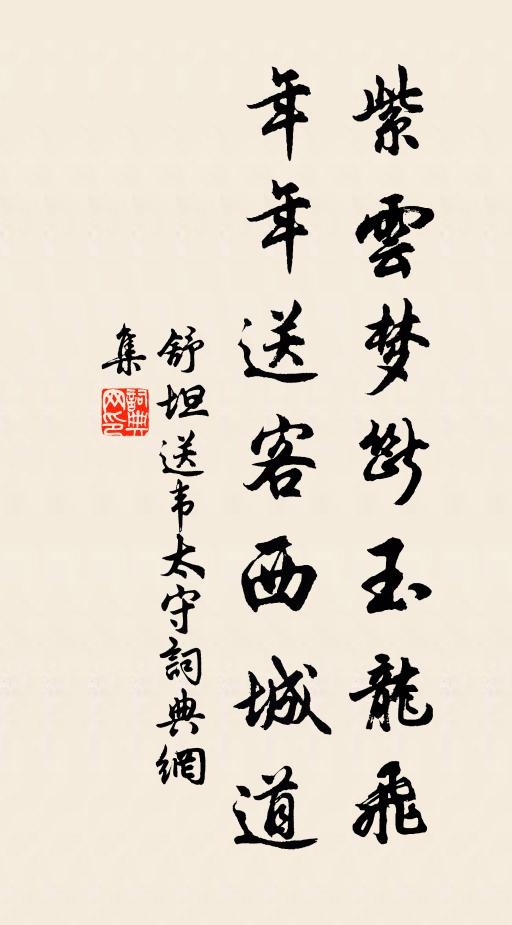 紫雲梦斷玉龍飛
年年送客西城道
舒坦送韦太守詞典網
集
詞典
网印